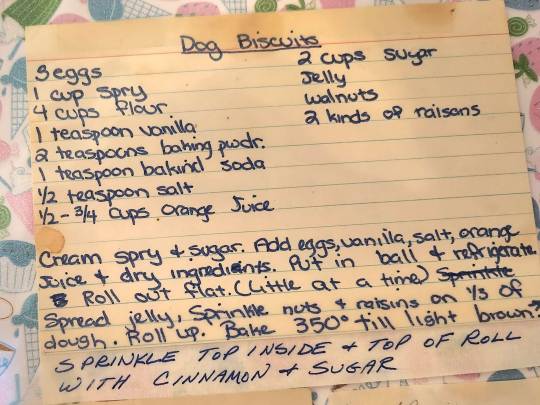 Dog Biscuits
3 eggs
1 cup Spry
4 cups flour
1 teaspoon vanilla
2 teaspoons baking pwdr.
1 teaspoon bakind soda
1/2 teaspoon salt
1/2 - 3/4 cups orange Juice
2 cups sugar
Jelly
walnuts
2 kinds of raisans
Cream spry & sugar. Add eggs, vanilla, salt, orange
Juice & dry ingredients. Put in ball & refrigerate
Roll out flat. (Little at a time) Sprinkle
Spread jelly, Sprinkle nuts & raisins on 1/3 of
dough. Roll up. Bake 350° till light brown.
SPRINKLE TOP INSIDE & TOP OF ROLL
WITH CINNAMON & SUGAR